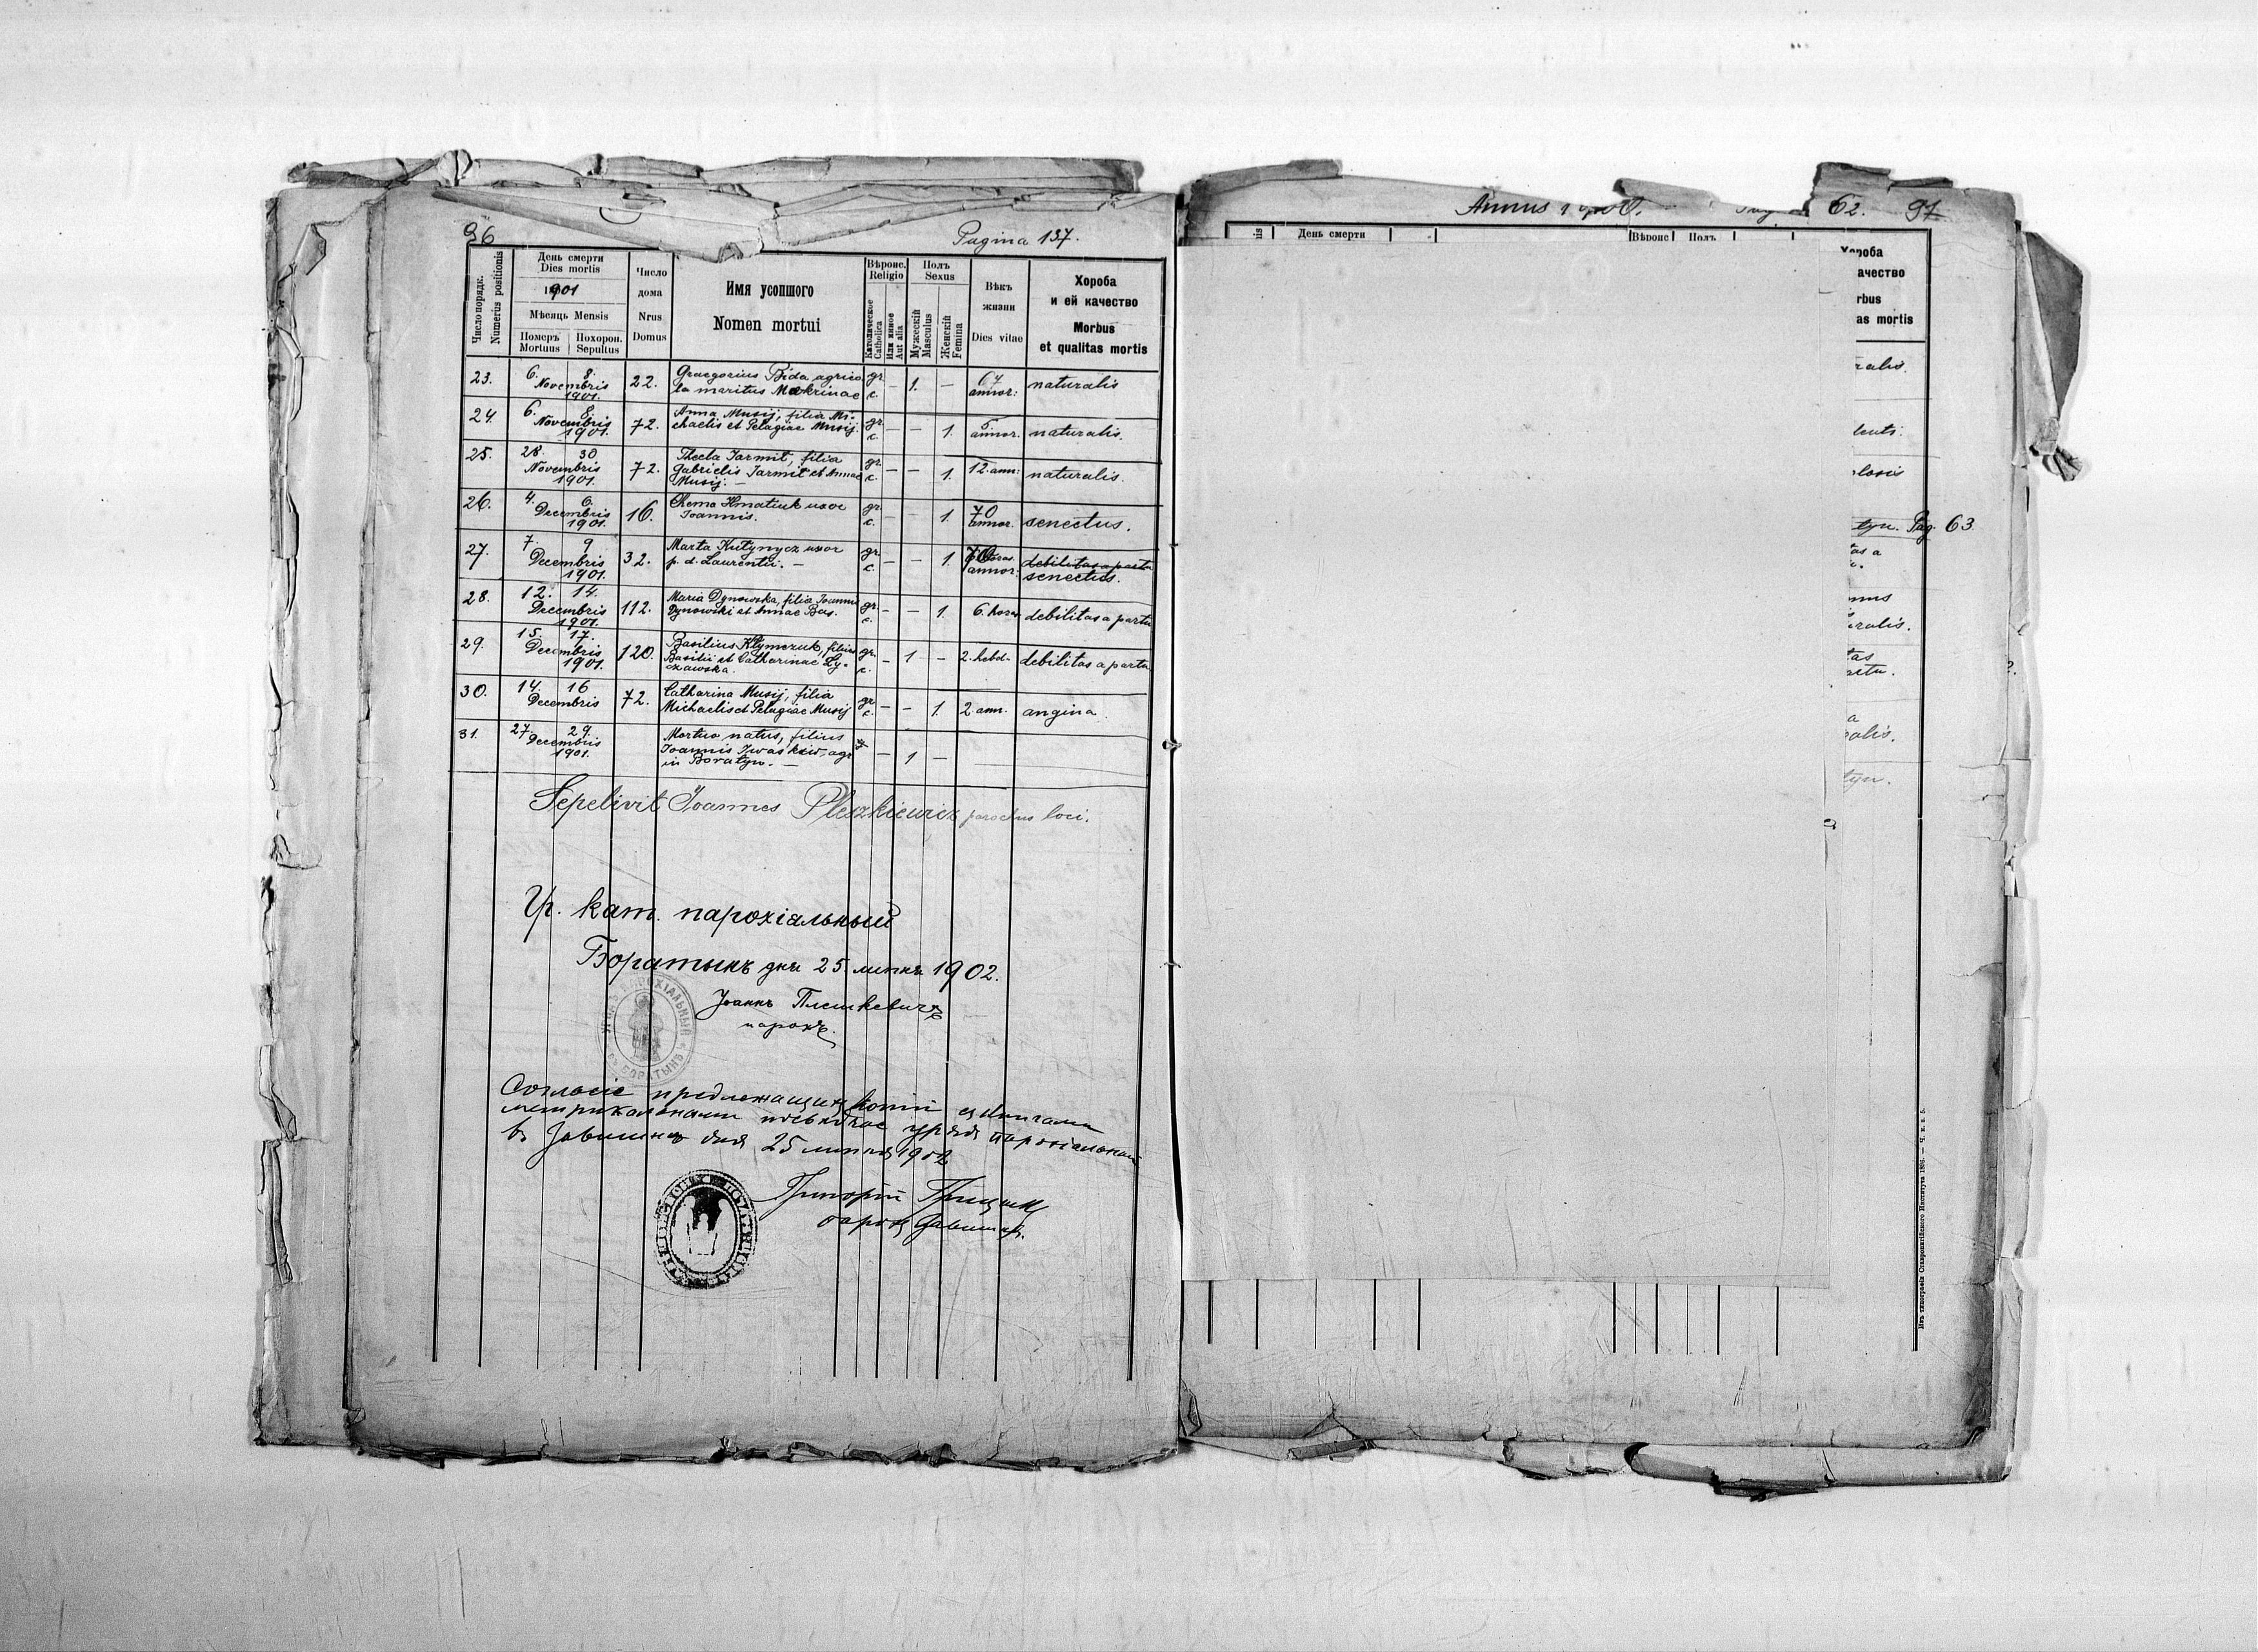 96
Pagina 137.
Число порядк.
Numerus positionis
День смерти
Dies mortis
1901
Мѣсяць Mensis
Померъ
Mortuus
Похорон.
Sepultus
Число
дома
Nrus
Domus
Имя усопшого
Nomen mortui
Вѣроис.
Religio
Католическое
Catholica
Или инное
Aut alia
Полъ
Sexus
Мужескій
Masculus
Женскій
Femina
Вѣкъ
жизни
Dies vitae
Хороба
и ей качество
Morbus
et qualitas mortis
23. 6. 8. Novembris 1901. 22. Graegorius Bida, agrico
la maritus Makrinae gr. c. — 1. — 67 annor: naturalis
24. 6. 8. Novembris 1901. 72. Anna Musij, filia Mi-
chaelis et Pelagiae Musij. gr. c. — — 1. 5 annor. naturalis.
25. 28. 30 Novembris 1901. 72. Thecla Jarmit, filia
Gabrielis Jarmit et Annae
Musij. — gr. c. — — 1. 12. ann: naturalis.
26. 4. 6. Decembris 1901. 16. Chema Hnatiuk uxor
Joannis. gr. c. — — 1. 70 annor. senectus.
27. 7. 9 Decembris 1901. 32. Marta Kutynycz uxor
p. d. Laurentii. — gr. c. — — 1. 70 annor: debilitas a partu
senectus.
28. 12. 14. Decembris 1901. 112. Maria Dynowska, filia Joannis
Dynowski et Annae Bas. gr. c. — — 1. 6. horas debilitas a partu
29. 15. 17. Decembris 1901. 120. Basilius Klymczuk, filius
Basilii et Catharinae Ly-
czawska. gr. c. — 1 — 2. hebd. debilitas a partu
30. 14. 16 Decembris 72. Catharina Musij, filia
Michaelis et Pelagiae Musij gr. c. — — 1. 2. ann. angina.
31. 27. 29. Decembris 1901. Mortuo natus, filius
Joannis Iwaskiw, agr
in Boratyn. — — 1 —
Sepelivit Joannes Pleszkiewicz parochus loci.
Гр. кат. парохіальный
Боратынъ дня 25. липня 1902.
Іоаннъ Плешкевичъ
парохъ.
Согласіе предлежащихъ копій съ книгами
метрикальными
въ дня 25 липня 1902
Григорій
парохъ
Annus 1900. 62. 97
День смерти
Вѣроис
Полъ
Хороба
ачество
rbus
as mortis
ralis.
lenti.
losis
tyn. Pag. 63
tas a
ralis.
tas
artu.
a
alis.
tyn.
Изъ типографіи Ставропигійского Института 1894. — Ч. к. в. 5.